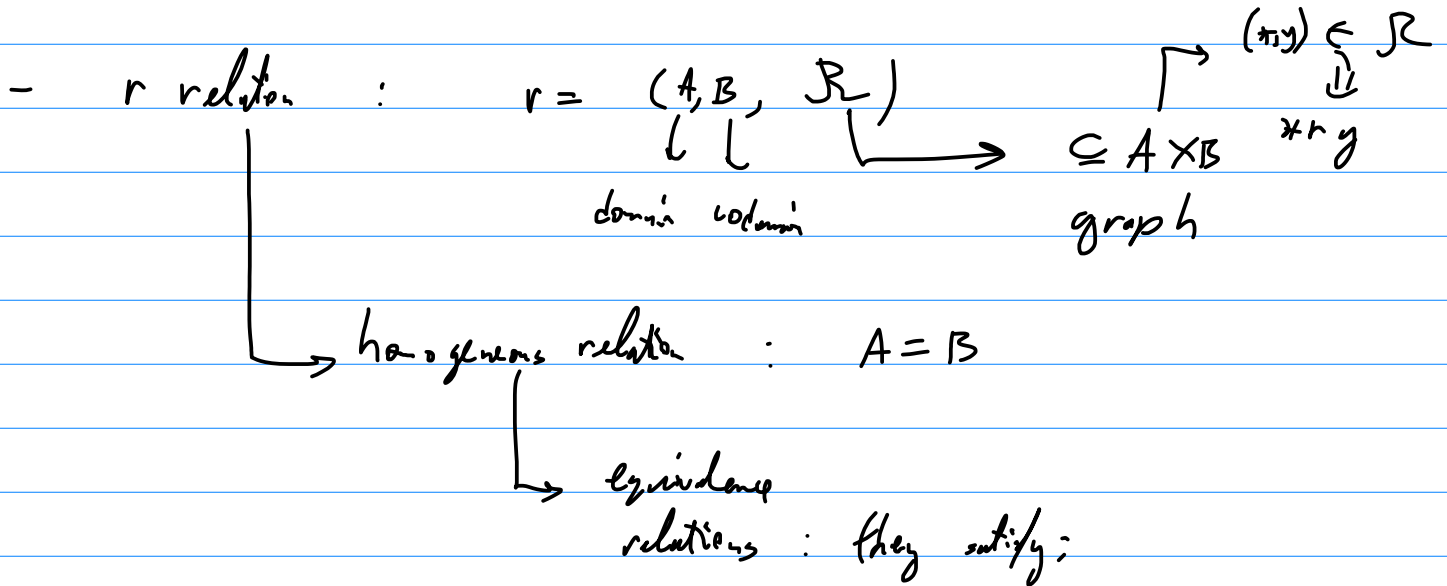 (x,y) ∈ R
- r relation : r = (A, B, R)
⇓
⊆ A × B x r y
domain codomain graph
homogeneous relation : A = B
equivalence
relations : they satisfy: